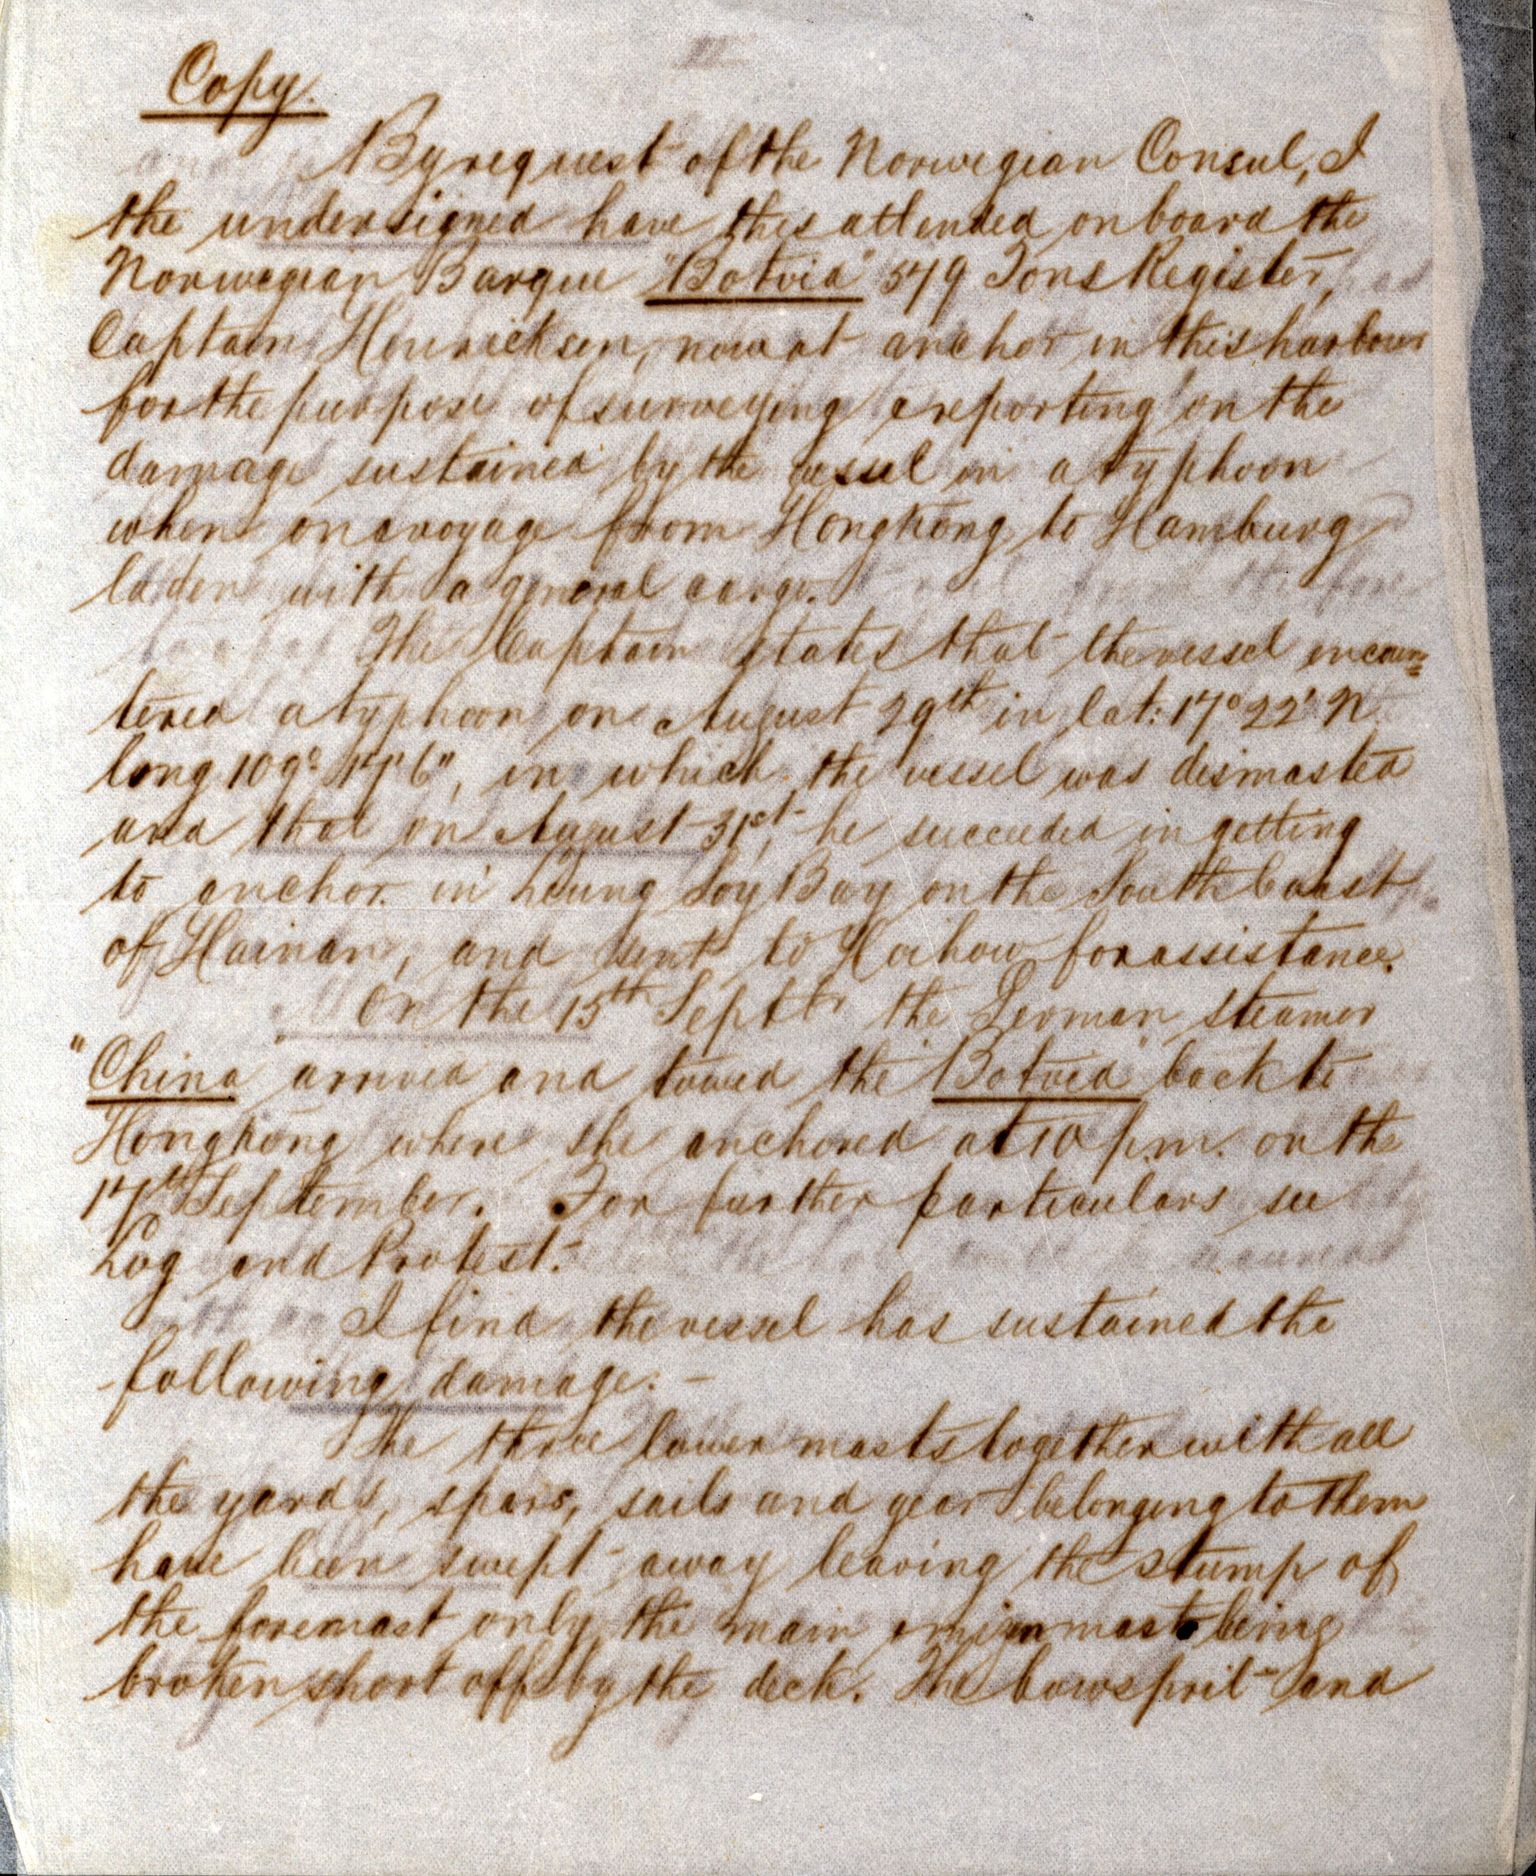 Copy.
By request of the Norwegian Consul, I
the undersigned have this attended on board the
Norwegian Barque "Botvid" 579 Tons Register,
Captain Henricksen, now at anchor in this harbour
for the purpose of surveying & reporting on the
damage sustained by the vessel in a typhoon
when on a voyage from Hongkong to Hamburg
laden with a general cargo.
The Captain states that the vessel encoun=
tered a typhoon on August 29th in lat: 17° 22' N.
long 109° 17' 6", in which the vessel was dismasted
and that on August 31st he succeeded in getting
to anchor in Leung Soy Bay on the South Coast
of Hainan, and sent to Hoihow for assistance.
On the 15th Septbr the German steamer
"China arrived and towed the "Botvid" back to
Hongkong where she anchored at 10 p.m. on the
17th September. For further particulars see
Log and Protest.
I find the vessel has sustained the
following damage. -
The three lower masts together with all
the yards, spars, sails and gear belonging to them
have been swept away leaving the stump of
the foremast only the main & mizen mast being
broken short off by the deck. The bowsprit and